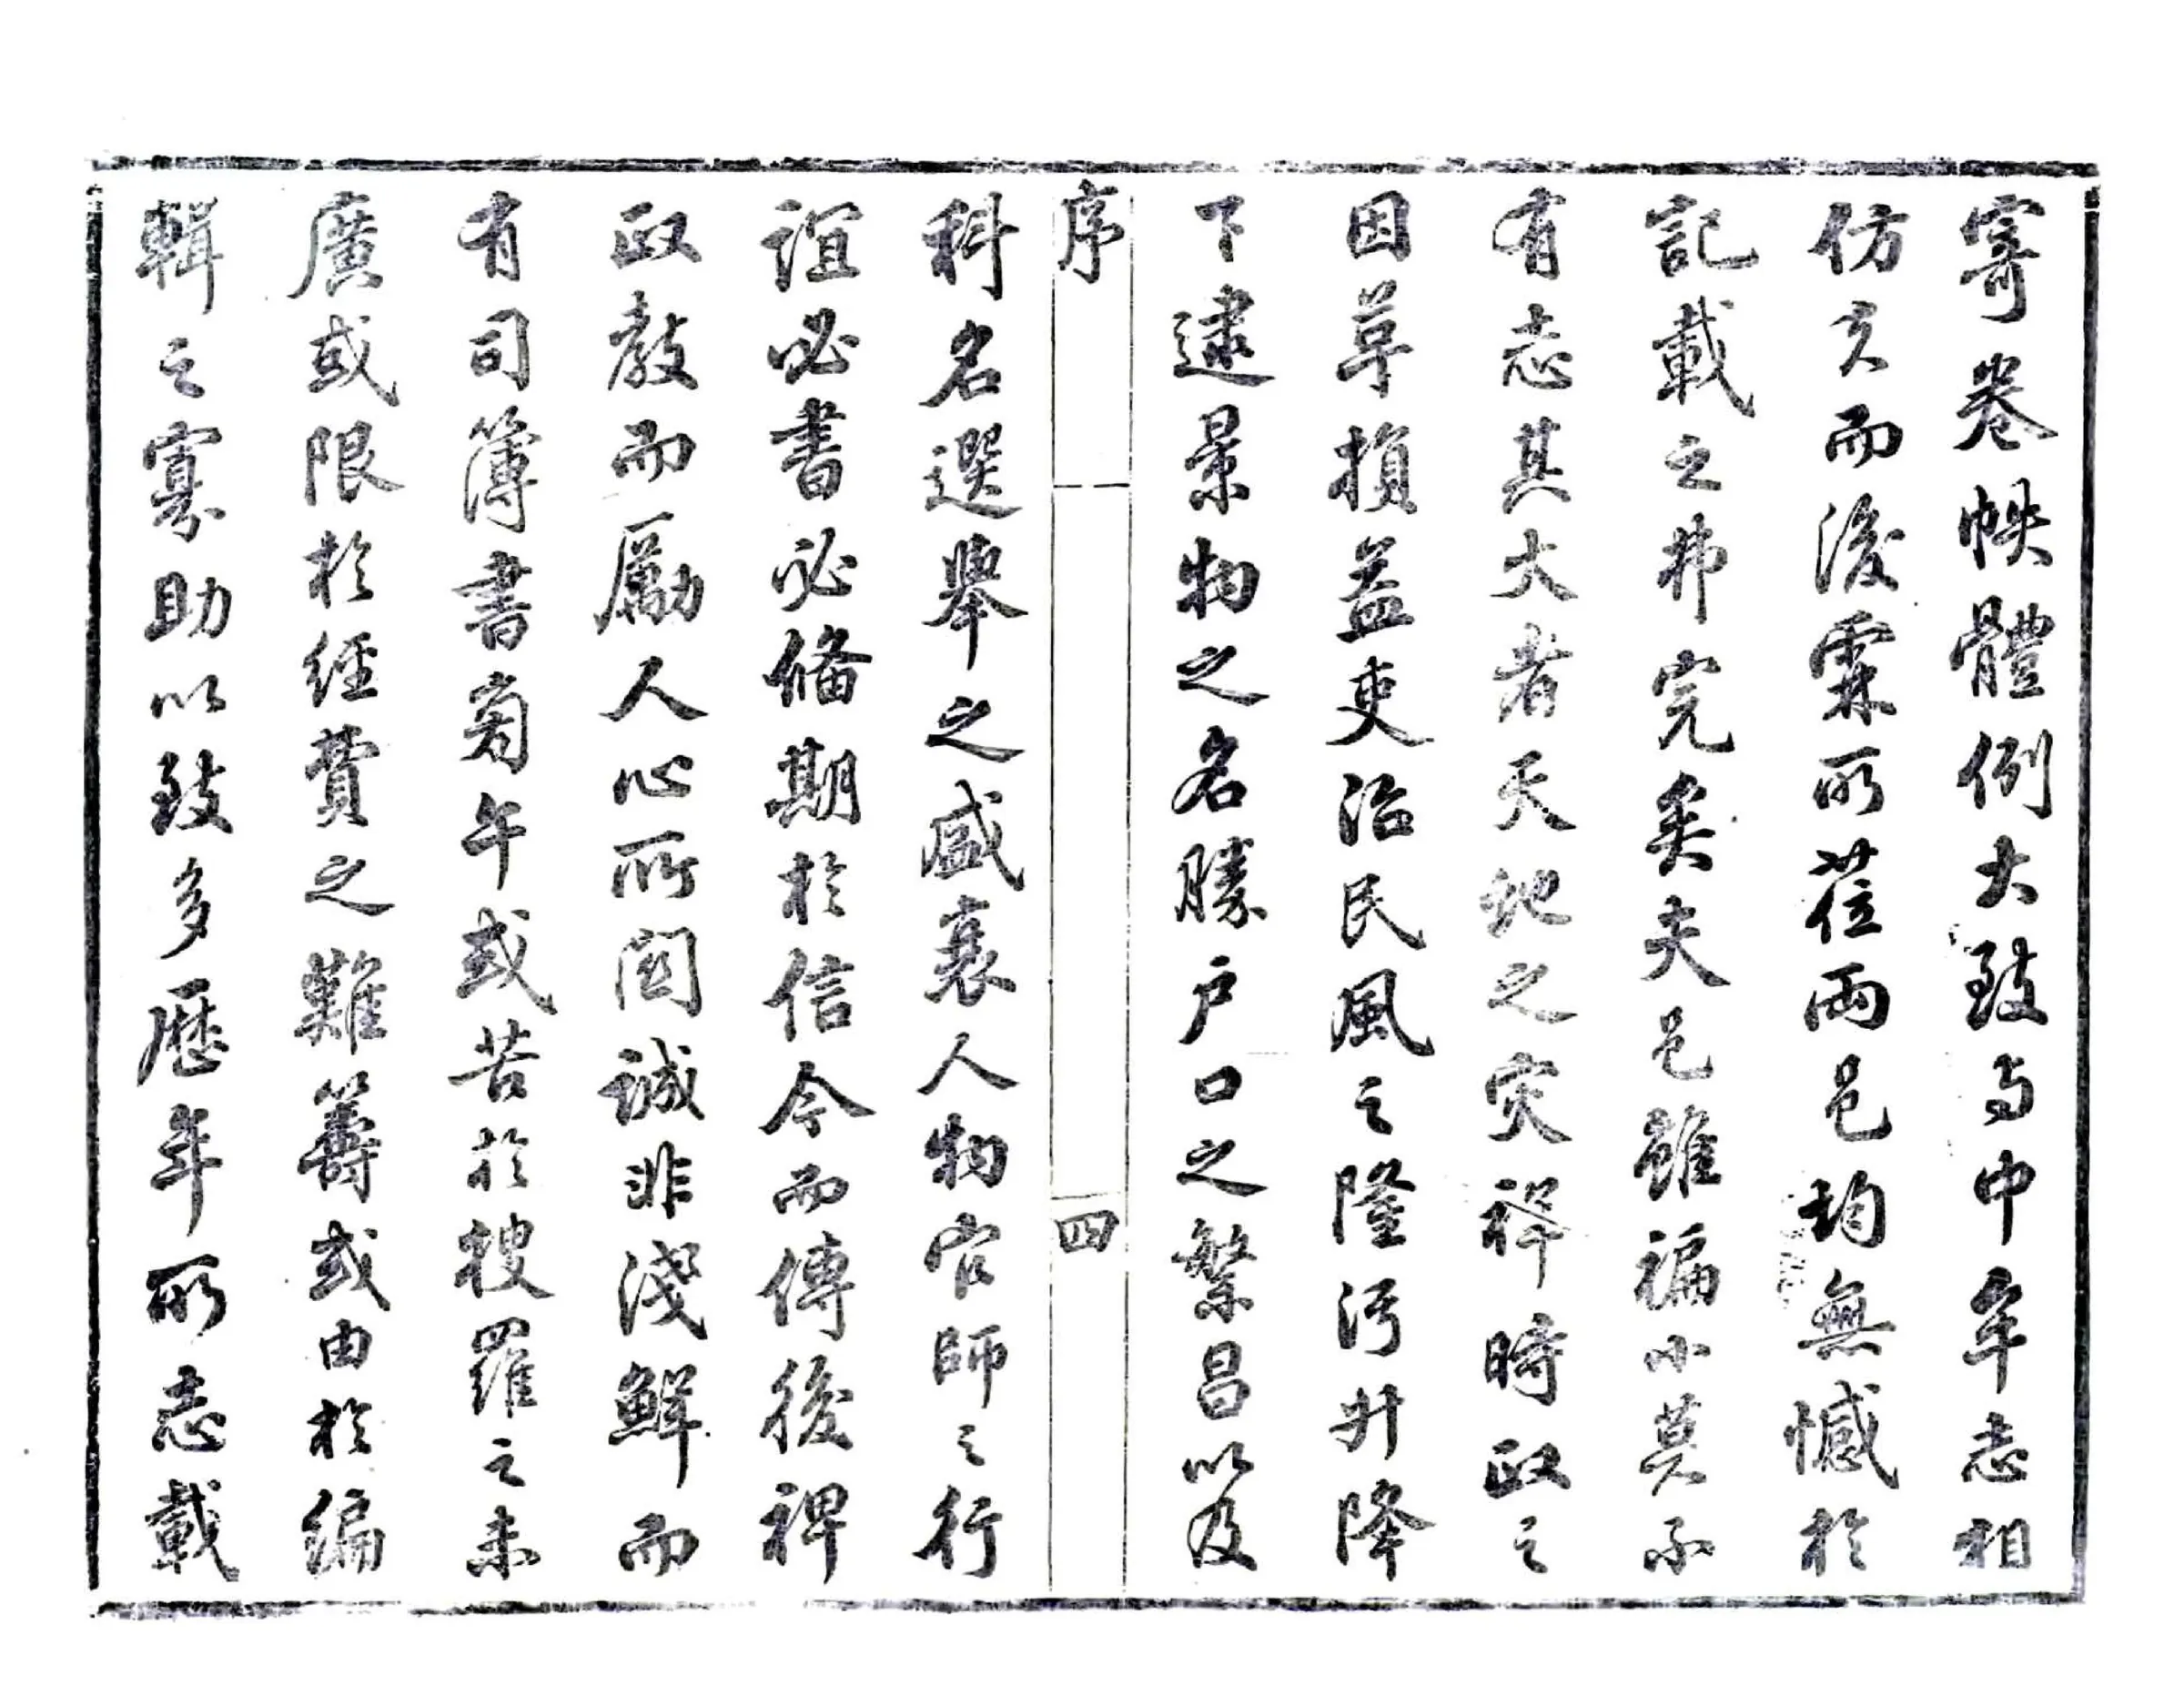 寄卷帙體例大致与中牟志相
仿夫而後霖所莅兩邑均無憾於
記載之弗完矣夫邑雖褊小莫不
有志其大者天地之灾祥時政之
因革損益吏治民風之隆污升降
下逮景物之名勝户口之繁昌以及
序
四
科名選舉之盛衰人物官師之行
誼必書必俻期於信今而傳後裨
政教而勵人心所関誠非淺鮮而
有司簿書旁午或苦於搜羅之未
廣或限於經費之難籌或由於编
輯之寡助以致多歷年所志載